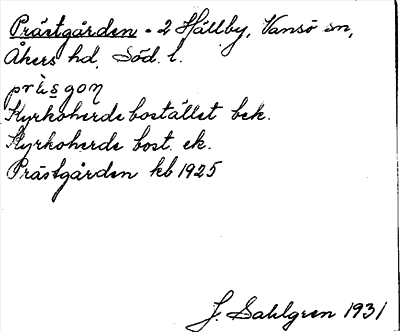 Prästgården - 2 Hällby, Vansö sn,
Åkers hd, Söd. l.
prɛ̀sgoŋ
Kyrkoherdebostället bek.
Kyrkoherde bost. ek.
Prästgården kb 1925
J. Sahlgren 1931